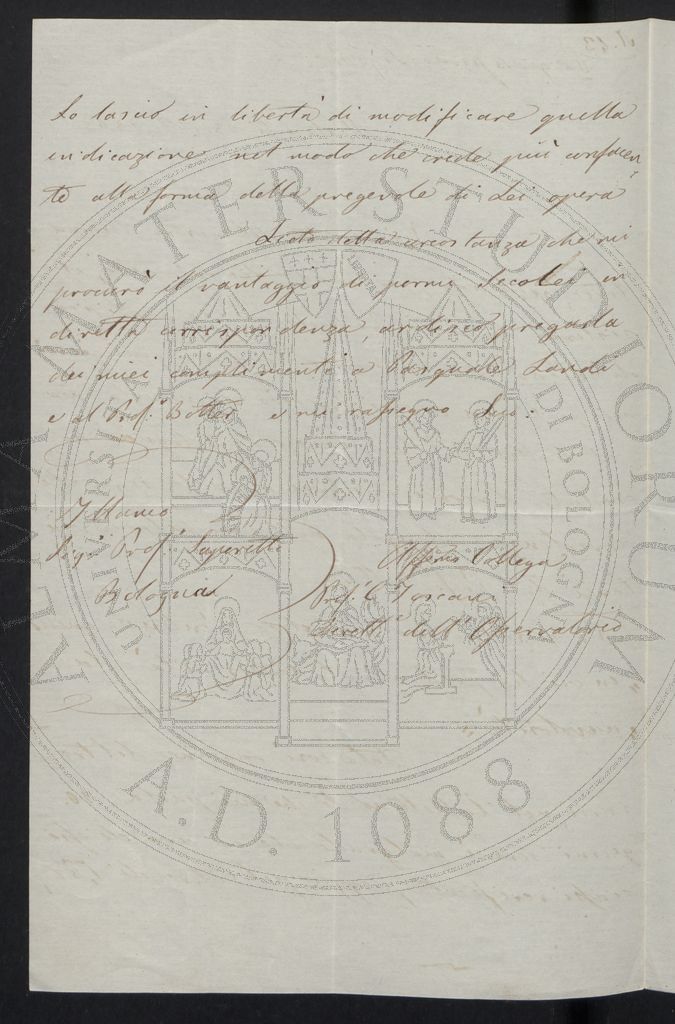 Lo lascio in libertà di modificare quella
indicazione nel modo che crede più confacen-
te alla forma della pregevole di Lei opera
Lieto della circostanza che mi
procurò il vantaggio di pormi Seco Lei in
diretta corrispondenza, ardisco pregarla
dei miei complimenti a Pasquale Landi
e al Prof.r Botter e mi rassegno Suo:
Illmo
Sigr Profr Saporetti
Bologna
Affmo Collega
Prof. C Toscani
Dirett.e dell'Osservatorio
ALMA MATER STUDIORUM
UNIVERSITÀ DI BOLOGNA
LIBERTAS
A.D. 1088